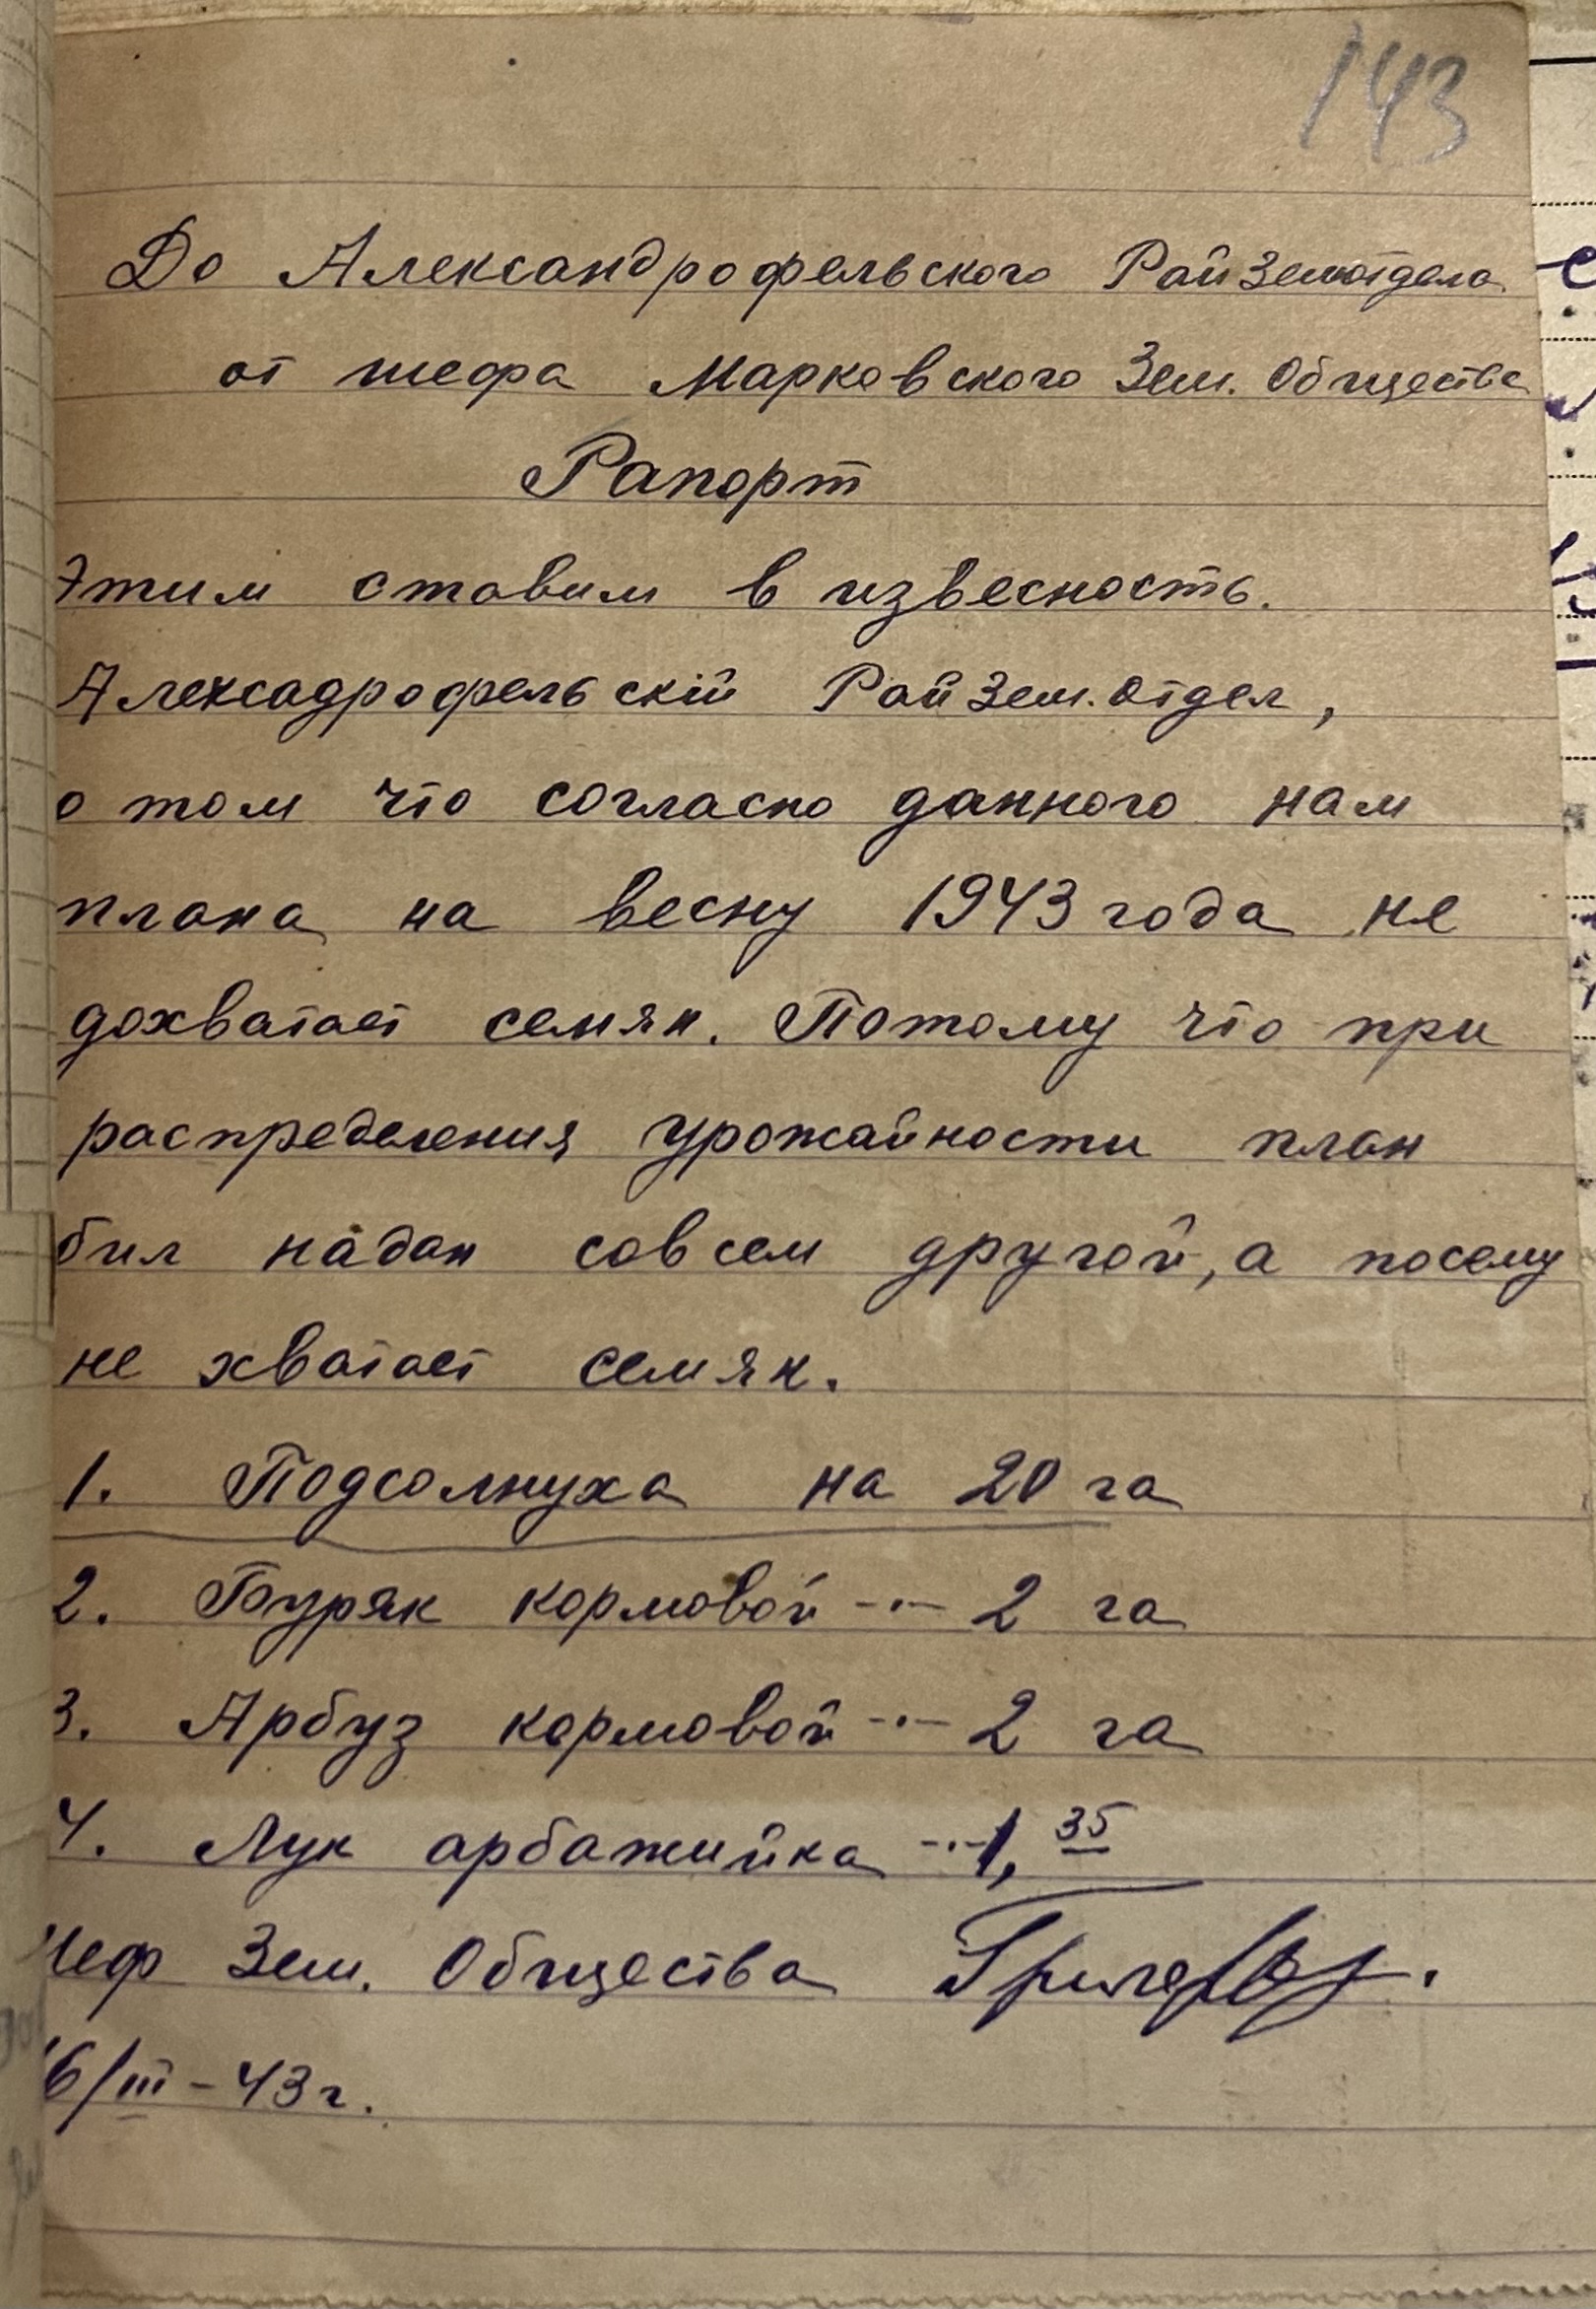 143
До Александрофельвского РайЗемотдела
от шефа Марковского Зем. Общества
Рапорт
Этим ставим в извесность.
Алексадрофельскій РайЗем.отдел,
о том что согласно данного нам
плана на весну 1943 года не
дохватает семян. Потому что при
распределения урожайности план
бил надан совсем другой, а посему
не хватает семян.
1. Подсолнуха на 20 га
2. Буряк кормовой -·- 2 га
3. Арбуз кормовой -·- 2 га
4. Лук арбажийка -·- 1,35
Шеф Зем. Общества
16/III-43 г.